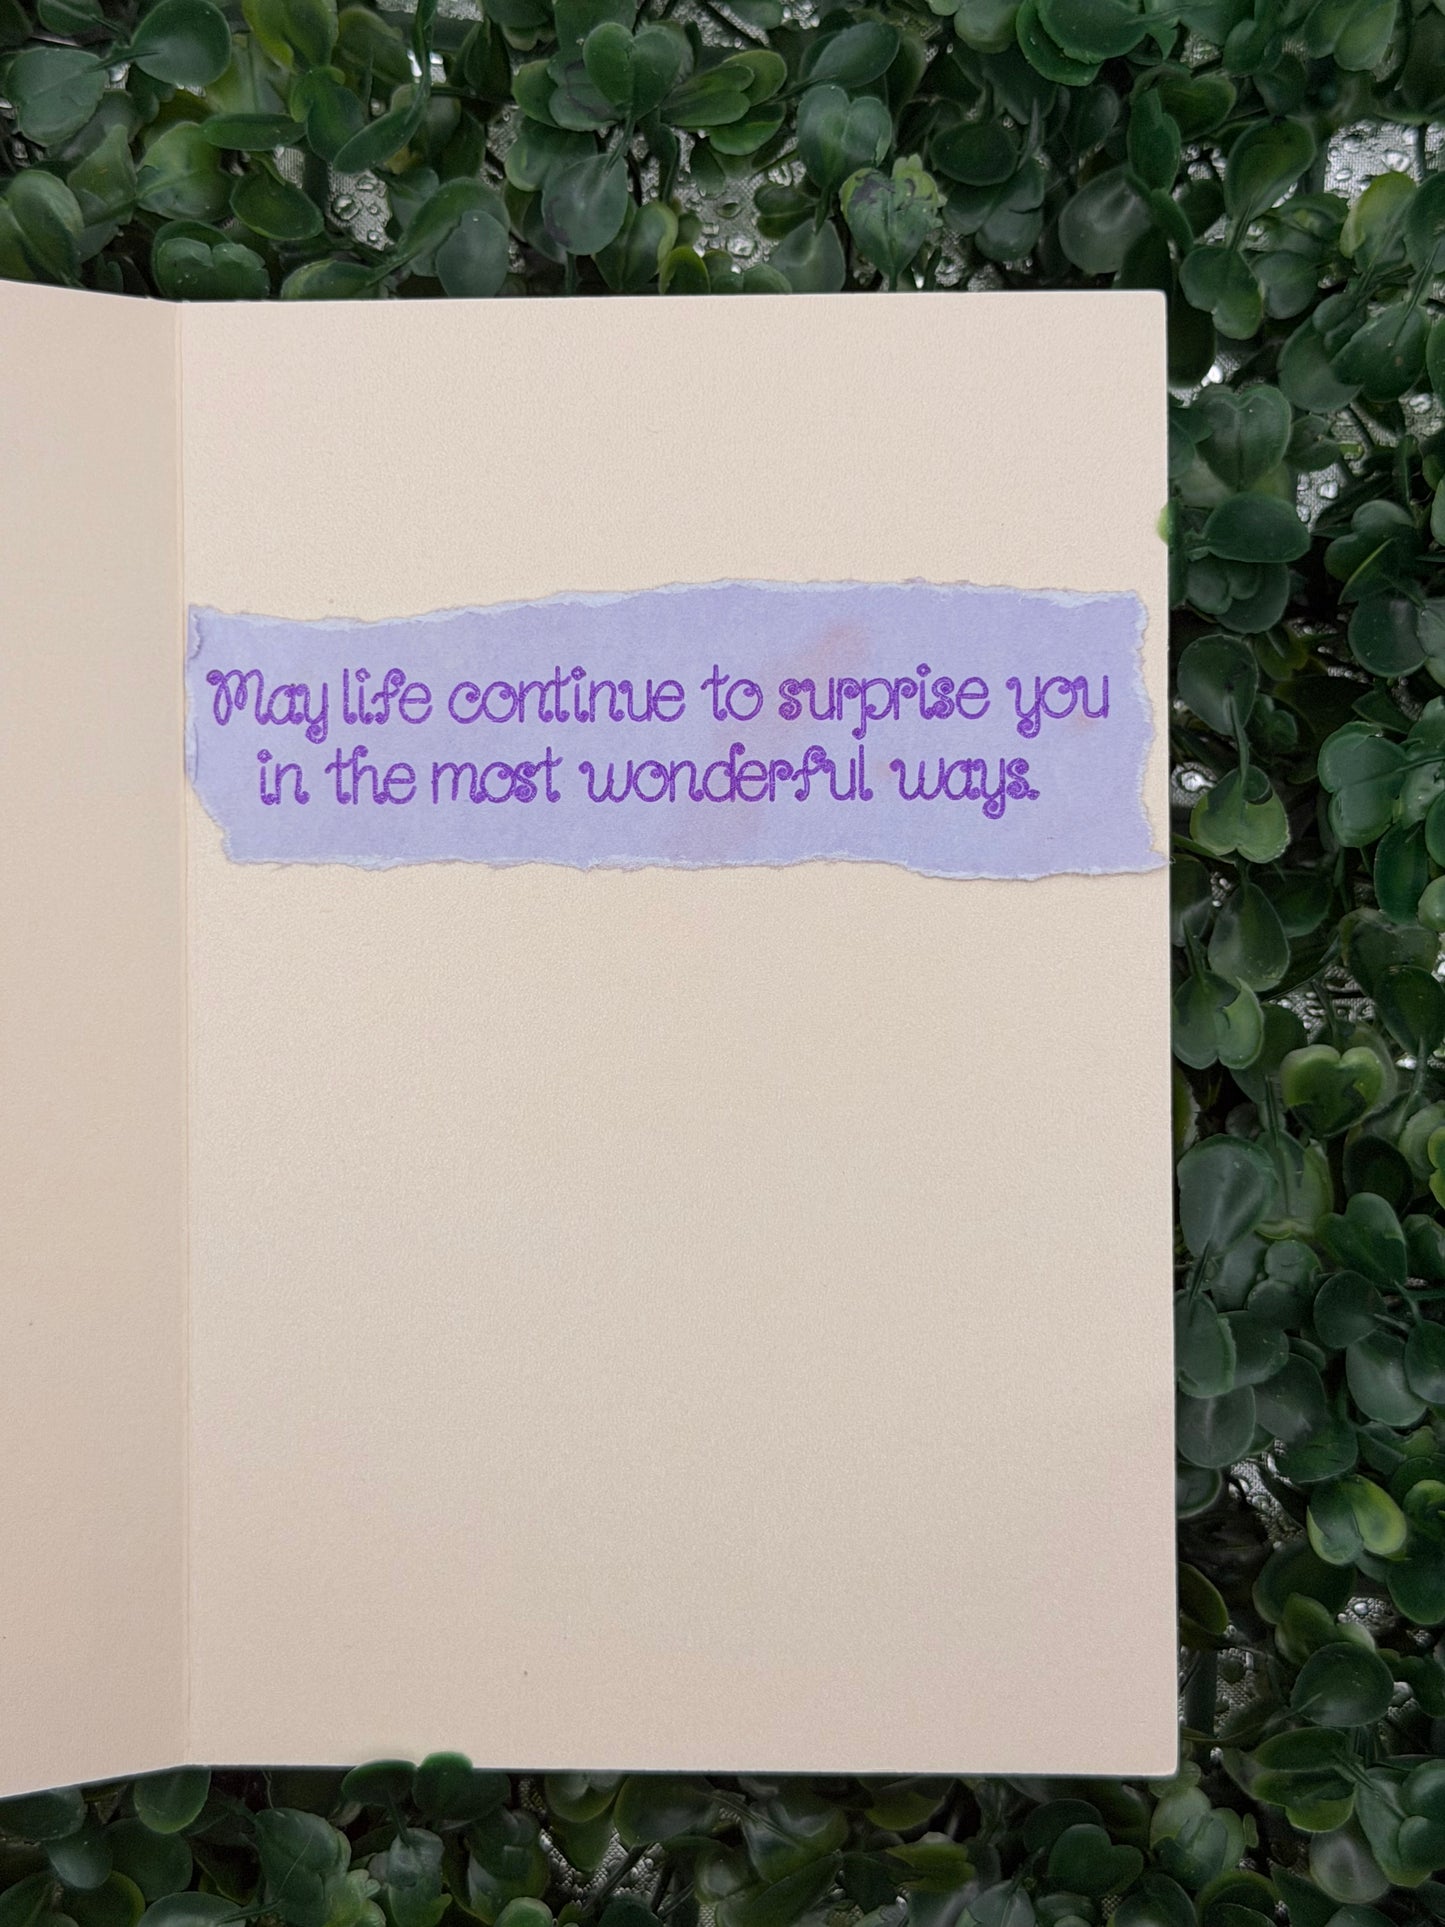 May life continue to surprise you
in the most wonderful ways.